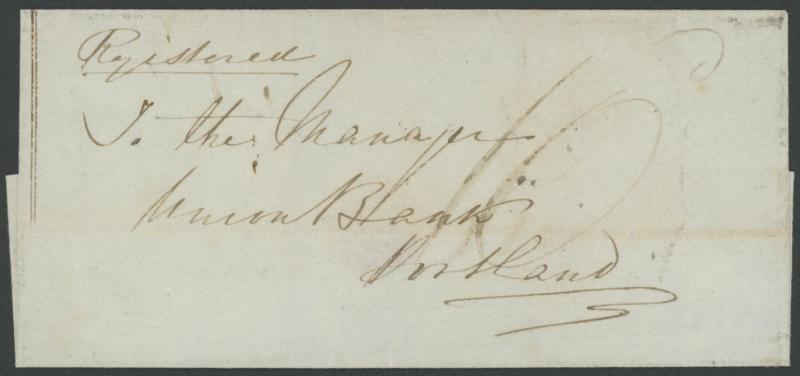 Registered
To the Manager
Union Bank
Portland